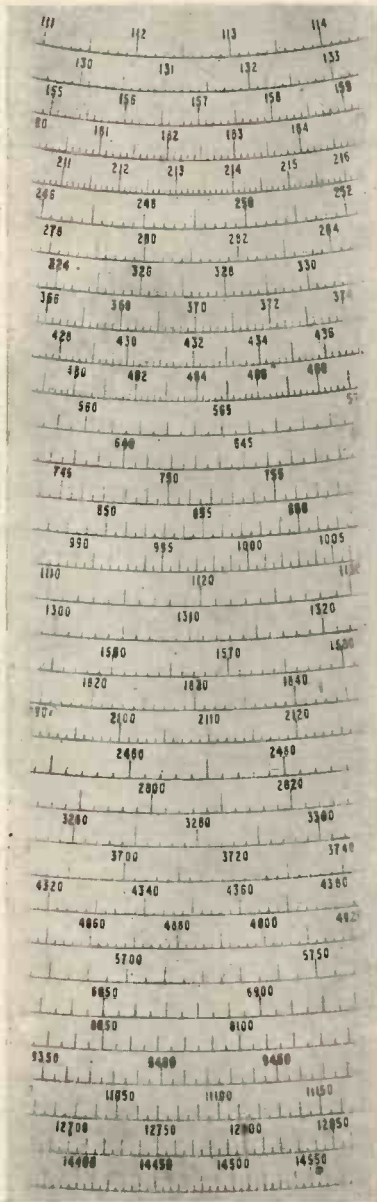 111 112 113 114
130 131 132 133
155 156 157 158 159
80 181 182 183 184
211 212 213 214 215 216
246 248 250 252
278 280 282 284
324 326 328 330
366 368 370 372 374
428 430 432 434 436
480 482 484 486 488
560 565
640 645
745 750 755
850 855 860
990 995 1000 1005
1110 1120
1300 1310 1320
1560 1570 1580
1820 1830 1840
2100 2110 2120
2460 2480
2800 2820
3260 3280 3300
3700 3720 3740
4320 4340 4360 4380
4860 4880 4900 4920
5700 5750
6850 6900
8050 8100
9350 9400 9450
11050 11100 11150
12700 12750 12800 12850
14400 14450 14500 14550